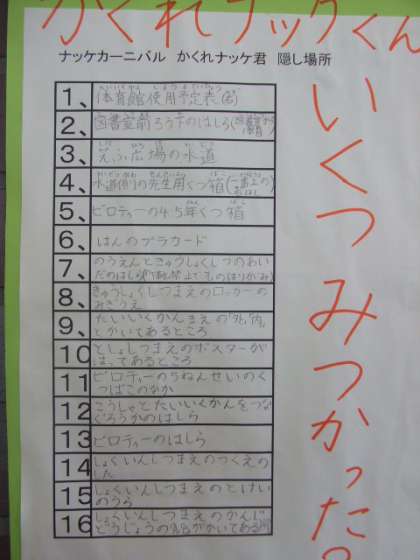 かくれナックくん
ナッケカーニバル かくれナッケ君 隠し場所
いくつみつかった?
1、 体育館使用予定表
2、 図書室前ろう下のはしら
3、 広場の水道
4、 水道側の先生用くつ箱(一番上の
5、 ピロティーの4.5年くつ箱
6、 はんのプラカード
7、 のうえんときゅうしょくしつのあい
だのはしら
8、 きゅうしょくしつまえのロッカーの
みぎうえ
9、 たいいくかんまえの
とかいてあるところ
10 としょしつまえのポスターが
はってあるところ
11 ピロティーの1ねんせいのく
つばこのなか
12 こうしゃとたいいくかんをつな
ぐろうかのはしら
13 ピロティーのはしら
14 しょくいんしつまえのつくえの
した
15 しょくいんしつまえのとけい
のうら
16 しょくいんしつまえのかんじ
どうじょうの